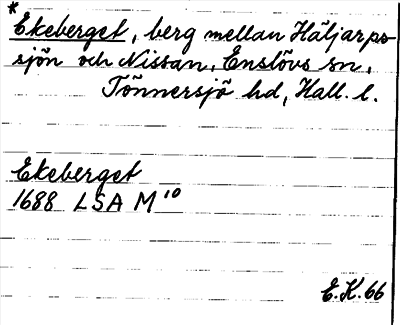 *
Ekeberget, berg mellan Häljarps-
sjön och Nissan, Enslövs sn,
Tönnersjö hd, Hall. l.
Ekeberget
1688 LSA M¹⁰
E.K. 66